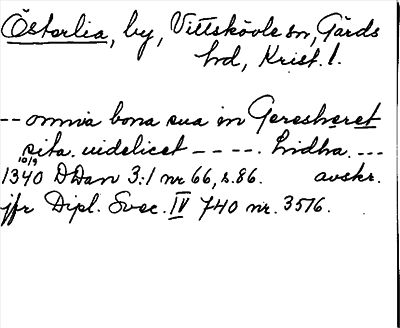 Österlia, by, Vittskövle sn, Gärds
hd, Krist. l.
-- omnia bona sua in Geresheret
sita. uidelicet ----- Lidha. ---
10/9
1340 DDan 3:1 nr 66, s. 86. avskr.
jfr Dipl. Svec. IV 740 nr. 3516.